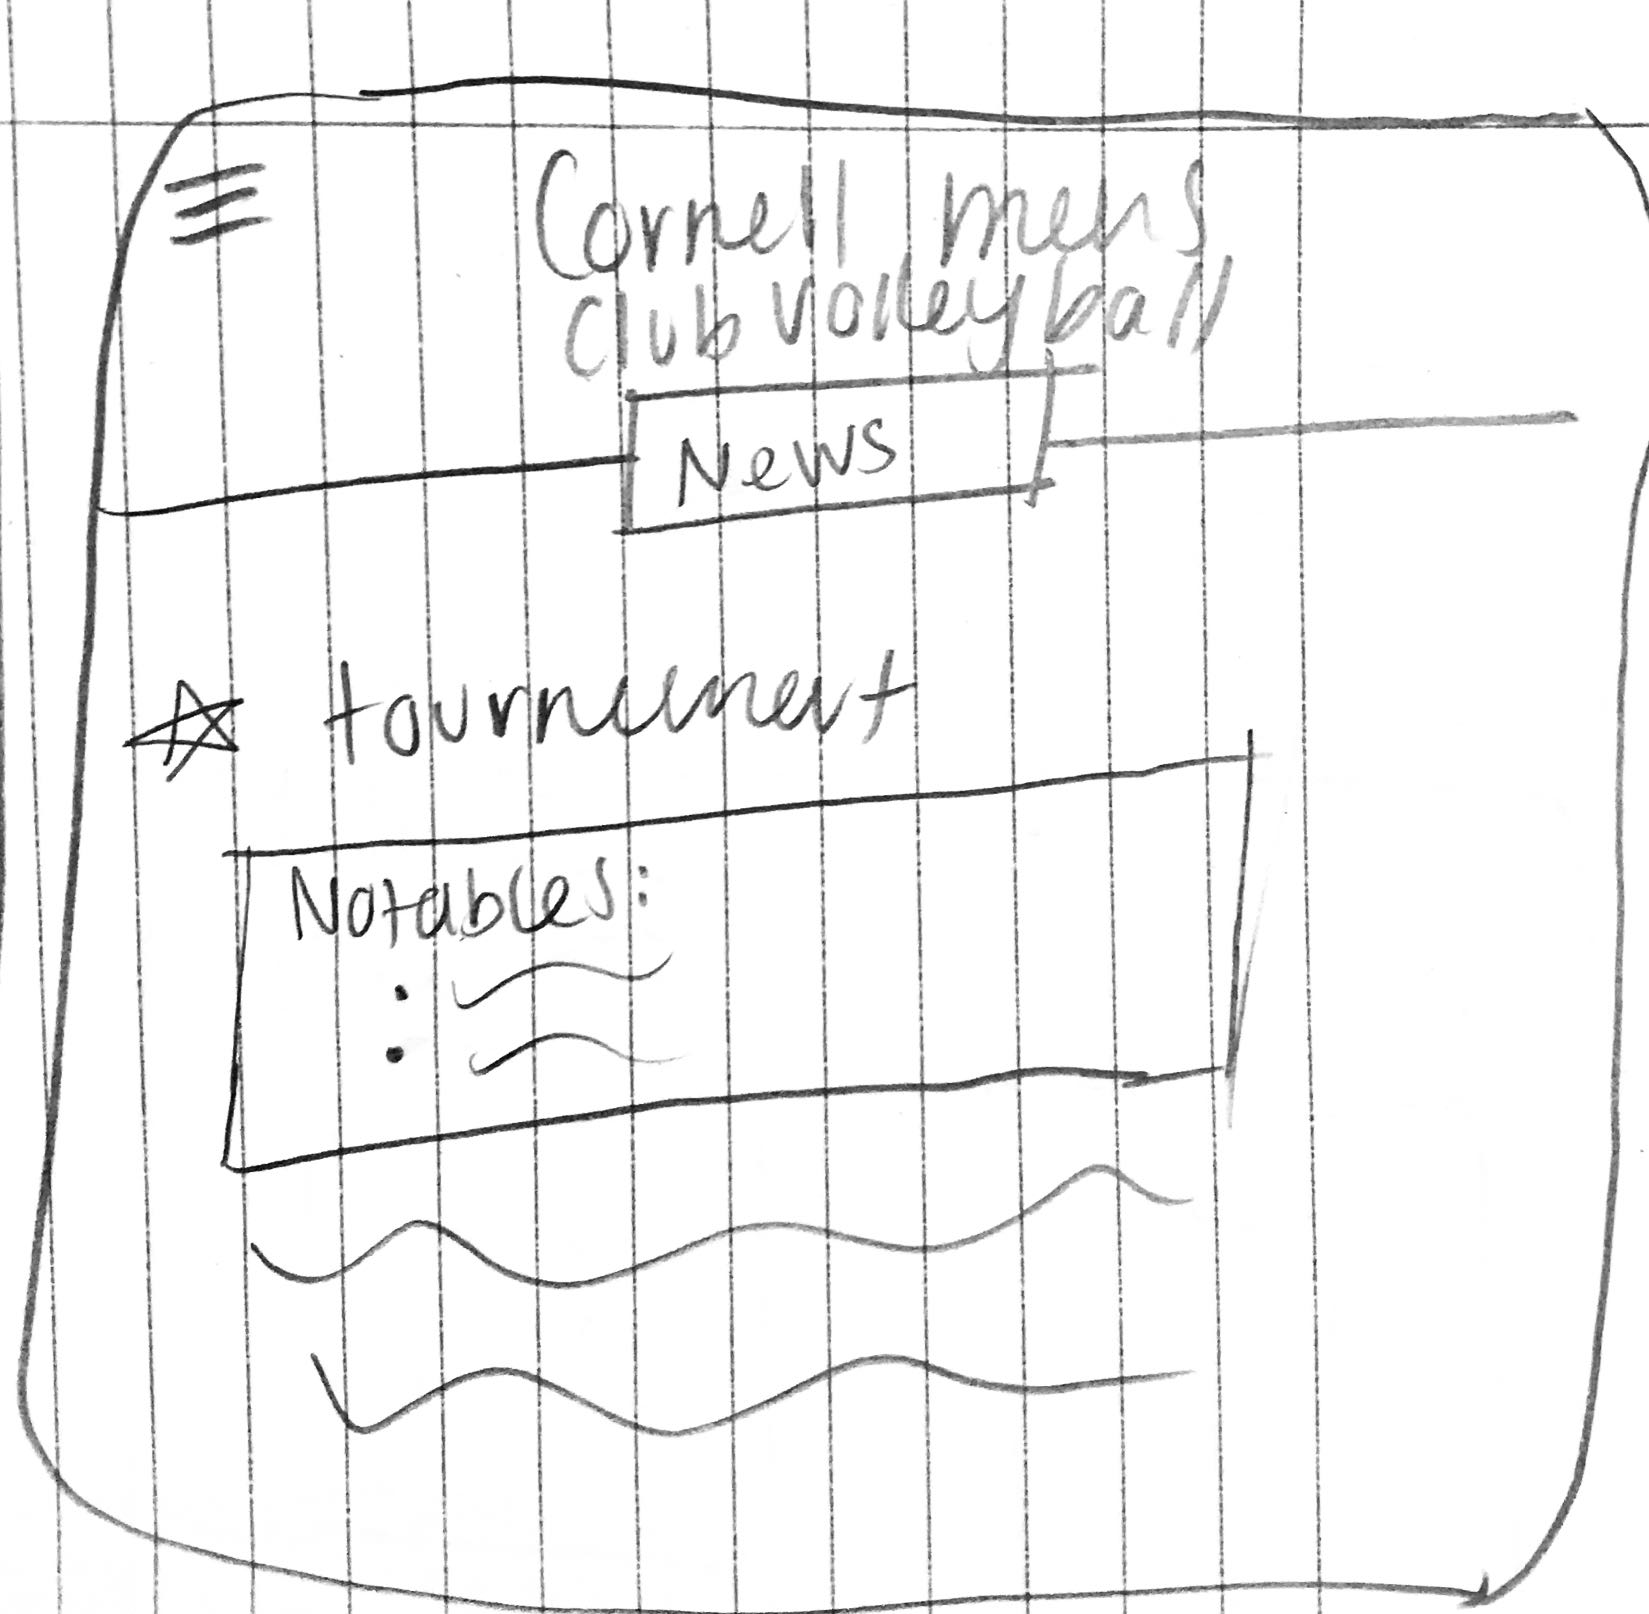 Cornell mens
club volleyball
News
tournement
Notables: